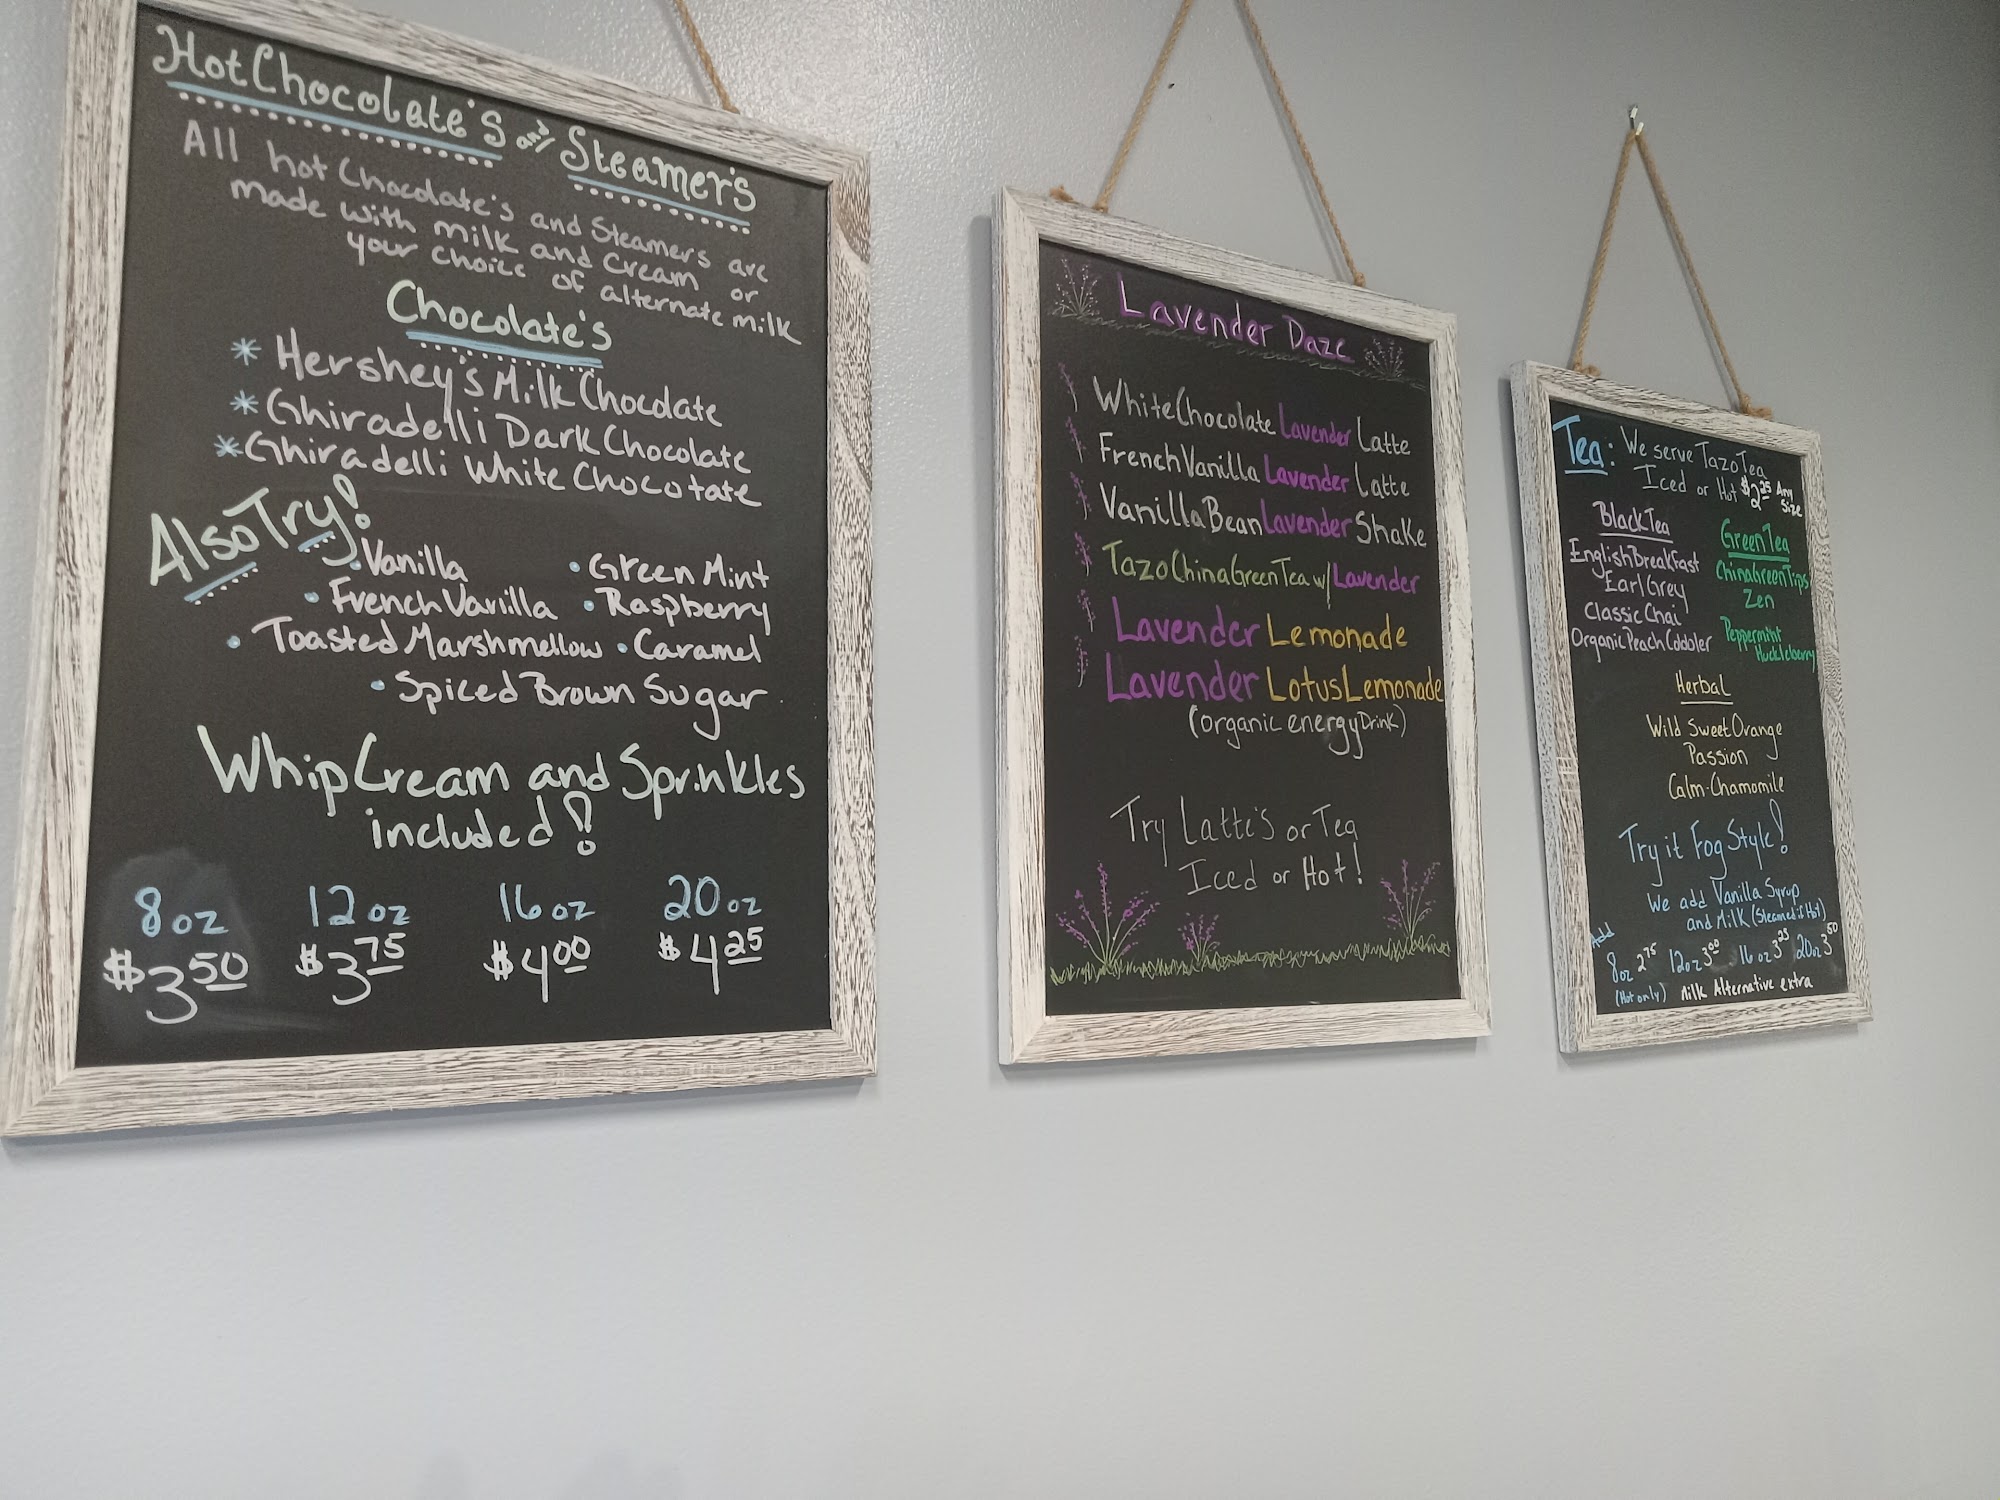 Hot Chocolate's and Steamer's
All hot Chocolate's and Steamers are
made with milk and Cream or
your choice of alternate milk
Chocolate's
* Hershey's Milk Chocolate
* Ghiradelli Dark Chocolate
* Ghiradelli White Chocolate
Also Try!
• Vanilla
• French Vanilla
• Toasted Marshmellow
• Green Mint
• Raspberry
• Caramel
• Spiced Brown Sugar
Whip Cream and Sprinkles
included!
8oz 12oz 16oz 20oz
$3.50 $3.75 $4.00 $4.25
Lavender Daze
White Chocolate Lavender Latte
French Vanilla Lavender Latte
Vanilla Bean Lavender Shake
Tazo China Green Tea w/ Lavender
Lavender Lemonade
Lavender Lotus Lemonade
(organic energy Drink)
Try Latte's or Tea
Iced or Hot!
Tea: We serve Tazo Tea
Iced or Hot $2.25 Any Size
Black Tea
English Breakfast
Earl Grey
Classic Chai
Organic Peach Cobbler
Green Tea
China Green Tips
Zen
Peppermint
Huckleberry
Herbal
Wild Sweet Orange
Passion
Calm-Chamomile
Try it Fog Style!
We add Vanilla Syrup
and Milk (Steamed if Hot)
Add
8oz 2.75 12oz 3.00 16oz 3.25 20oz 3.50
(Hot only) Milk Alternative extra